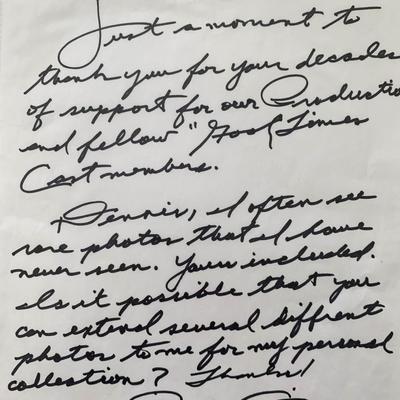 Just a moment to
thank you for your decades
of support for our Productio
and fellow "Good Times
Cast members.
Dennis, I often see
rare photos that I have
never seen. Yours included.
Is it possible that you
can extend several diffrent
photos to me for my personal
collection? Thanks!